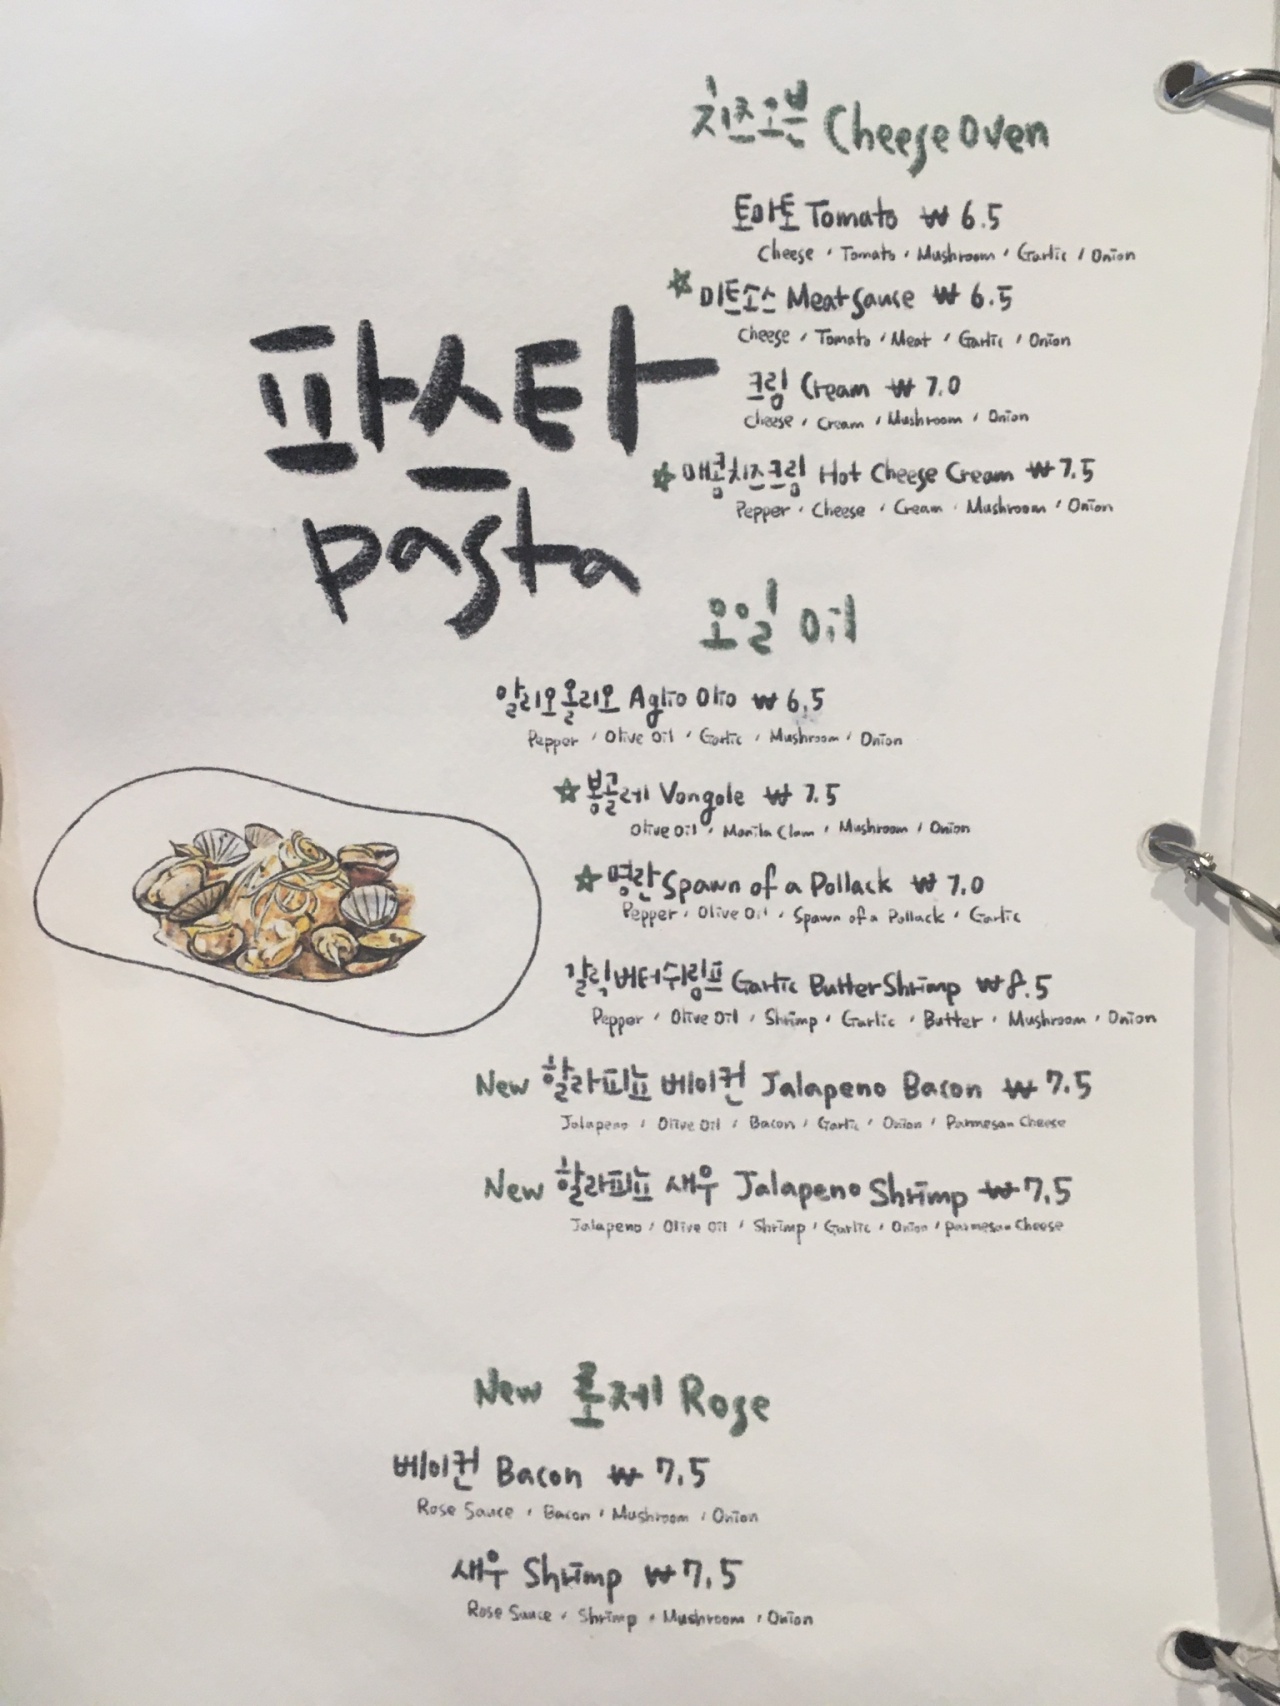 파스타
pasta
치즈오븐 Cheese Oven
토마토 Tomato ₩ 6.5
Cheese / Tomato / Mushroom / Garlic / Onion
☆ 미트소스 Meat Sauce ₩ 6.5
Cheese / Tomato / Meat / Garlic / Onion
크림 Cream ₩ 7.0
Cheese / Cream / Mushroom / Onion
☆ 매콤치즈크림 Hot Cheese Cream ₩ 7.5
Pepper / Cheese / Cream / Mushroom / Onion
오일 Oil
알리오올리오 Aglio Olio ₩ 6.5
Pepper / Olive Oil / Garlic / Mushroom / Onion
☆ 봉골레 Vongole ₩ 7.5
Olive Oil / Manila Clam / Mushroom / Onion
☆ 명란 Spawn of a Pollack ₩ 7.0
Pepper / Olive Oil / Spawn of a Pollack / Garlic
갈릭버터쉬림프 Garlic Butter Shrimp ₩ 8.5
Pepper / Olive Oil / Shrimp / Garlic / Butter / Mushroom / Onion
New 할라피뇨 베이컨 Jalapeno Bacon ₩ 7.5
Jalapeno / Olive Oil / Bacon / Garlic / Onion / Parmesan Cheese
New 할라피뇨 새우 Jalapeno Shrimp ₩ 7.5
Jalapeno / Olive Oil / Shrimp / Garlic / Onion / Parmesan Cheese
New 로제 Rose
베이컨 Bacon ₩ 7.5
Rose Sauce / Bacon / Mushroom / Onion
새우 Shrimp ₩ 7.5
Rose Sauce / Shrimp / Mushroom / Onion